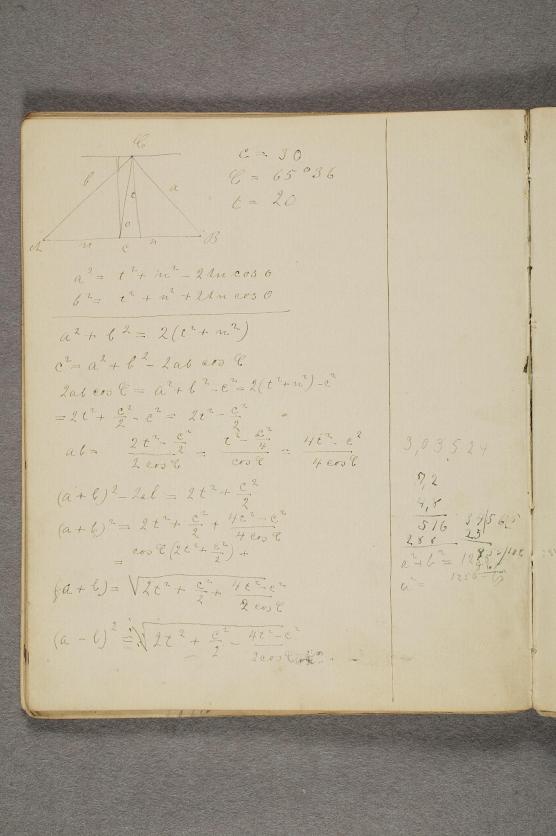 C
b
t
a
o
A
n
c
n
B
c = 30
C = 65°36
t = 20
a² = t² + n² - 2tn cos o
b² = t² + n² + 2tn cos o
a² + b² = 2(t² + n²)
c² = a² + b² - 2ab cos C
2ab cos C = a² + b² - c² = 2(t² + n²) - c²
= 2t² + c²/2 - c² = 2t² - c²/2 =
ab = (2t² - c²/2)/(2 cos C) = (t² - c²/4)/(cos C) = (4t² - c²)/(4 cos C)
(a + b)² - 2ab = 2t² + c²/2
(a + b)² = 2t² + c²/2 + (4t² - c²)/(4 cos C)
= cos C (2t² + c²/2) +
(a + b) = √(2t² + c²/2 + (4t² - c²)/(2 cos C))
(a - b)² = √(2t² + c²/2 - (4t² - c²)/(2 cos C))
3,03524
7,2
4,8
516
288
a² + b² =
a² =